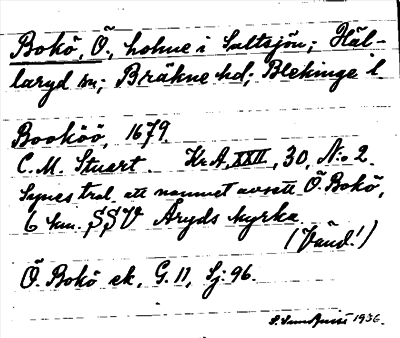 Bokö, Ö., holme i Saltsjön; Häl-
laryd sn; Bräkne hd; Blekinge l.
Booköö, 1679.
C. M. Stuart. Kr.A, XXII, 30, No 2.
Synes trol. att namnet avsett Ö. Bokö,
6 km. SSV Åryds kyrka.
(Vänd!)
Ö. Bokö ek, G. 11, Sj: 96.
1936.